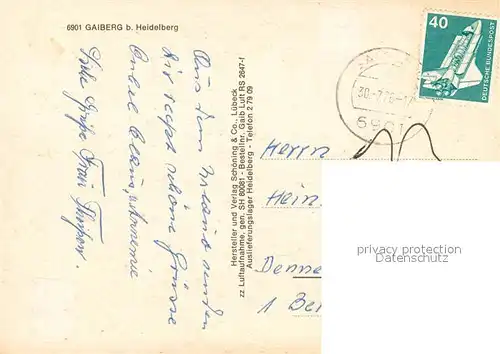 6901 GAIBERG b. Heidelberg
Aus dem Urlaub senden
Dir recht schöne Grüsse
Onkel Claus, u. Annemie
Liebe Grüße Frau
Hersteller und Verlag Schöning & Co., Lübeck
zz Luftaufnahme, gen. SH 80081 - Bestellnr. Gaib Luft RS 2647-f
Auslieferungslager Heidelberg - Telefon 2 79 09
40
DEUTSCHE BUNDESPOST
30.-7.76-17
6901
Herrn
Hein
Denne
1 Ber
privacy protection
watermark